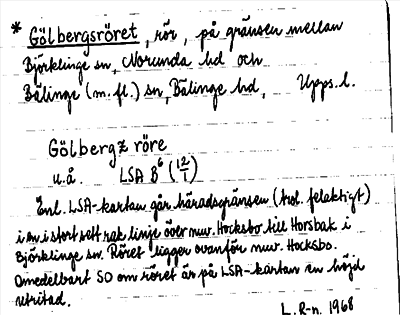 * Gölbergsröret, rör, på gränsen mellan
Björklinge sn, Norunda hd och
Bälinge (m. fl.) sn, Bälinge hd, Upps. l.
Gölbergz röre
u.å. LSA B6 (12/1)
Enl. LSA-kartan går häradsgränsen (trol. felaktigt)
i sn i stort sett rak linje över nuv. Hocksbo till Horsbak i
Björklinge sn. Röret ligger ovanför nuv. Hocksbo.
Omedelbart SO om röret är på LSA-kartan en höjd
utritad.
L. R-n. 1968